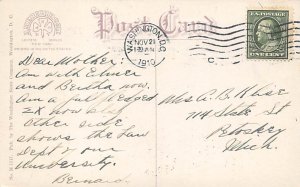 Post Card
WASHINGTON, D.C.
NOV 21
1910
U.S. POSTAGE
ONE CENT
Dear Mother:
Am with Elmer
and Bertha now.
Am a full fledged
now
Other side
shows the Law
Dept of our
University.
Bernard
Mrs A. B. Klise
714 State St
Petoskey
Mich.